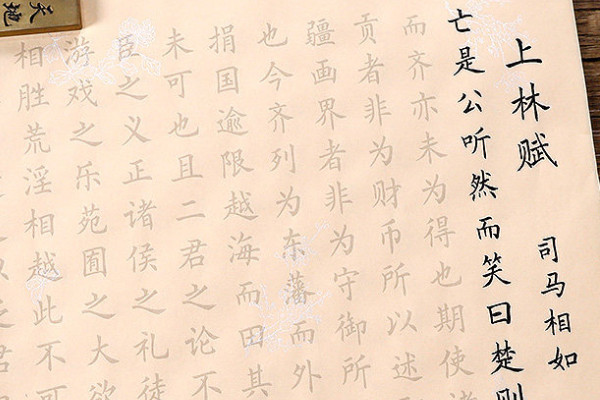 上林赋 司马相如
亡是公听然而笑曰楚则
而齐亦未为得也期使诸
贡者非为财币所以述
疆画界者非为守御所
也今齐列为东藩而外
捐国逾限越海而田其
未可也且二君之论不
臣之义正诸侯之礼徒
游戏之乐苑囿之大欲
相胜荒淫相越此不可
天地